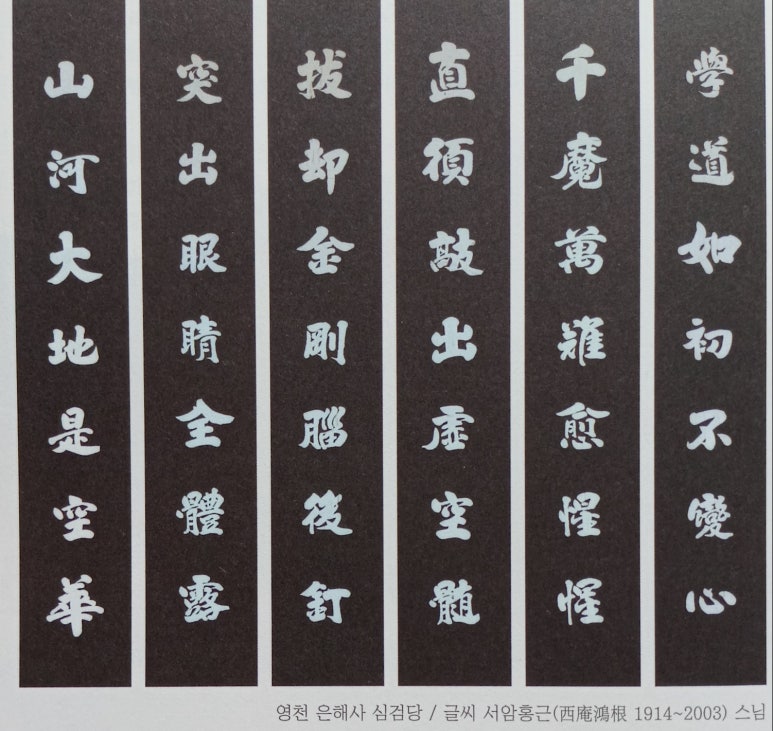 學道如初不變心
千魔萬難愈惺惺
直須敲出虛空髓
拔却金剛腦後釘
突出眼睛全體露
山河大地是空華
영천 은해사 심검당 / 글씨 서암홍근(西庵鴻根 1914~2003) 스님